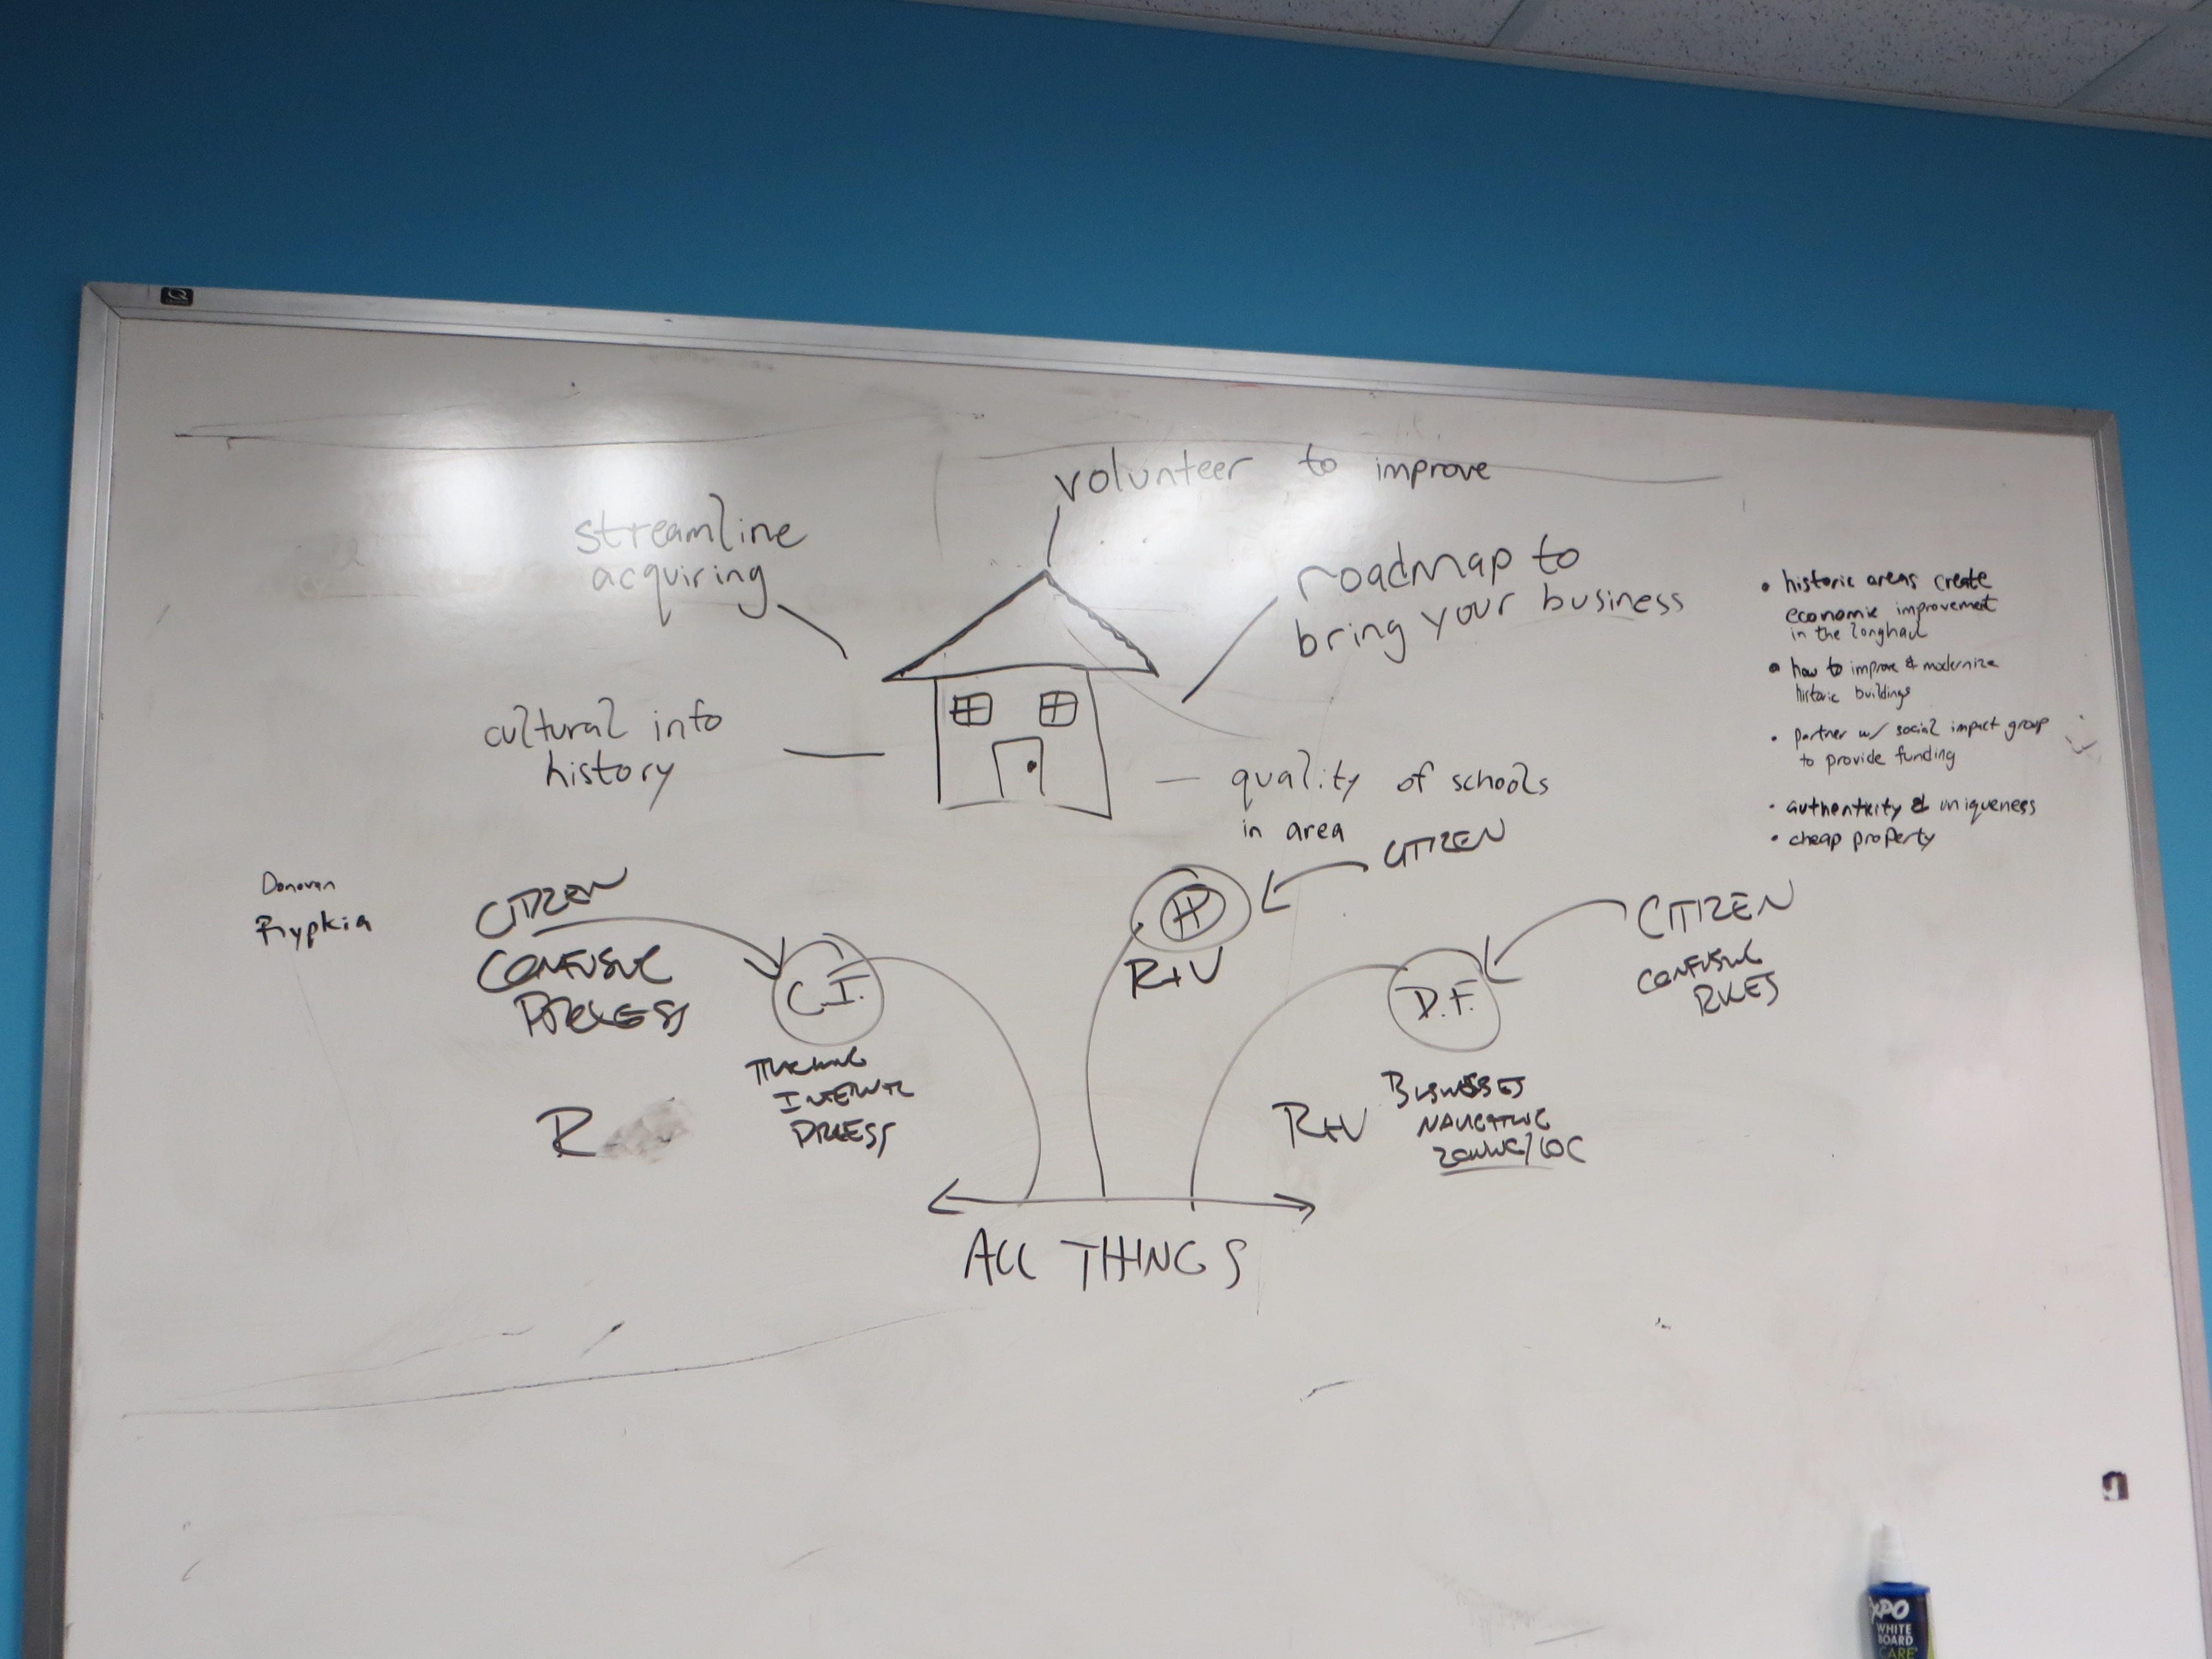 volunteer to improve
streamline
acquiring
roadmap to
bring your business
cultural info
history
quality of schools
in area
• historic areas create
economic improvement
in the longhaul
• how to improve & modernize
historic buildings
• partner w/ social impact group
to provide funding
• authenticity & uniqueness
• cheap property
Donovan
Rypkia
CITIZEN
CONFUSING
PROCESS
R
C.I.
TRACKING
INTERNAL
PROCESS
H
R+V
CITIZEN
D.F.
CITIZEN
CONFUSING
RULES
R+V
BUSINESSES
NAVIGATING
ZONING/LOC
ALL THINGS
EXPO
WHITE
BOARD
CARE